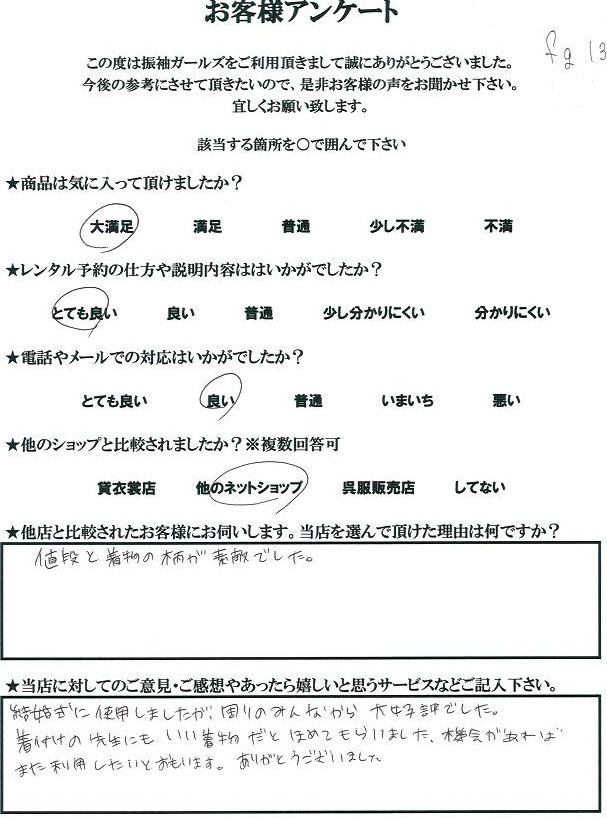 お客様アンケート
fg 13
この度は振袖ガールズをご利用頂きまして誠にありがとうございました。
今後の参考にさせて頂きたいので、是非お客様の声をお聞かせ下さい。
宜しくお願い致します。
該当する箇所を○で囲んで下さい
★商品は気に入って頂けましたか？
大満足 満足 普通 少し不満 不満
★レンタル予約の仕方や説明内容ははいかがでしたか？
とても良い 良い 普通 少し分かりにくい 分かりにくい
★電話やメールでの対応はいかがでしたか？
とても良い 良い 普通 いまいち 悪い
★他のショップと比較されましたか？※複数回答可
貸衣裳店 他のネットショップ 呉服販売店 してない
★他店と比較されたお客様にお伺いします。当店を選んで頂けた理由は何ですか？
値段と着物の柄が素敵でした。
★当店に対してのご意見・ご感想やあったら嬉しいと思うサービスなどご記入下さい。
結婚式に使用しましたが、周りのみんなから大好評でした。
着付けの先生にもいい着物だとほめてもらいました。機会があれば
また利用したいとおもいます。ありがとうございました。